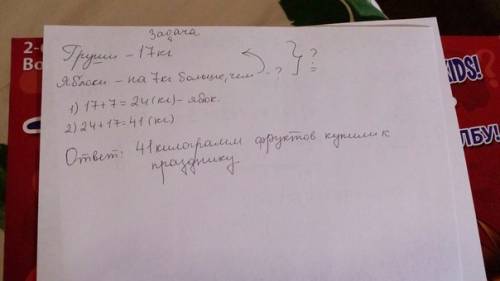 Задача
Груши – 17кг
Яблоки – на 7кг больше, чем - ? } ?
1) 17+7=24(кг)- яблок.
2) 24+17=41(кг)
Ответ: 41 килограмм фруктов купили к
празднику.
2-
Во
KIDS!
ЛБУ!